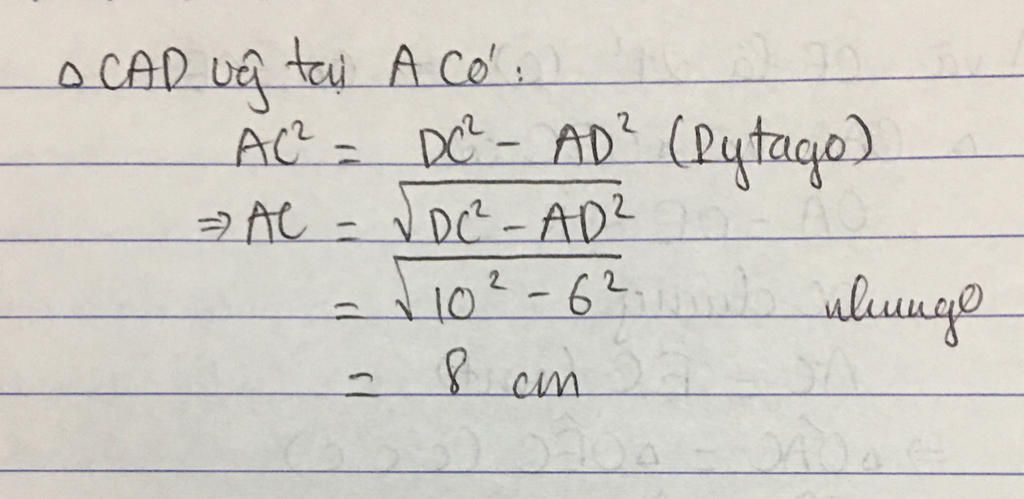 △CAD vg̃ tại A có:
AC² = DC² - AD² (Pytago)
⇒ AC = √DC² - AD²
= √10² - 6²
nhungo
= 8 cm